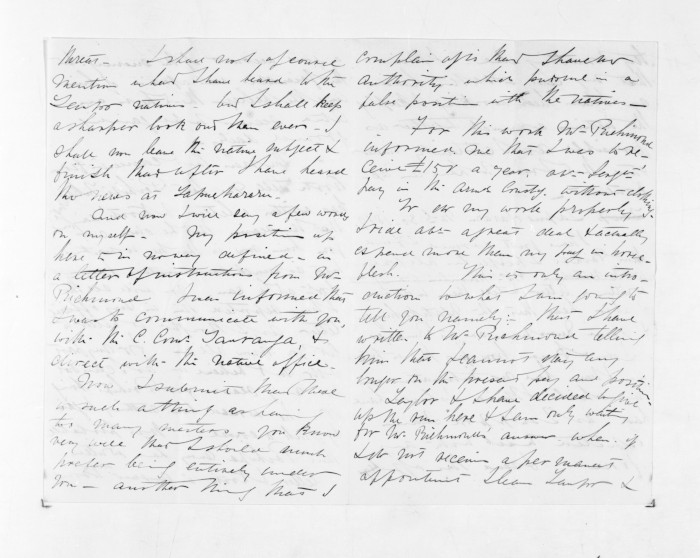 threats - I shall not of course
mention what I have heard to the
Taupo natives but I shall keep
a sharper look out than ever - I
shall now leave the native subject &
finish that after I have heard
the news at Tapuaeharuru.
And now I will say a few words
on myself - My position up
here is in no way defined - in
a letter of instructions from Mr
Richmond I was informed that
I was to communicate with you,
with the C. Comr Tauranga, &
direct with the native office.
Now I submit that there
is such a thing as having
too many masters - you know
very well that I should much
prefer being entirely under
you - another thing that I
complain of is that I have no
authority which puts me in a
false position with the natives -
For this work Mr Richmond
informed me that I was to re-
ceive £150 a year, or Sergts
pay in the Armd Consty. without clothing.
To do my work properly
I ride over a great deal & actually
expend more than my pay in horse
flesh. This is only an intro-
duction to what I am going to
tell you namely:- that I have
written to Mr Richmond telling
him that I cannot stay any
longer on the present pay and position
Taylor & I have decided to give
up the run here & I am only waiting
for Mr Richmonds answer when if
I do not receive a permanent
appointment I leave Taupo &